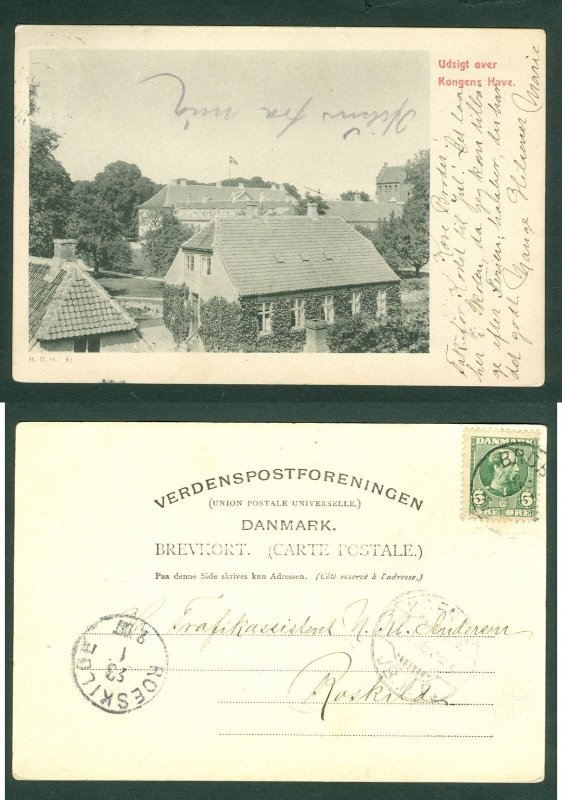 Udsigt over
Kongens Have.
Hilsen fra mig
Kære Broder!
Tak for Kortet til Jul. Det
her i Skolen, da jeg kom tilba
ge efter Ferien; du har
det godt. Mange Hilsener Marie
VERDENSPOSTFORENINGEN
(UNION POSTALE UNIVERSELLE.)
DANMARK.
BREVKORT. (CARTE POSTALE.)
Paa denne Side skrives kun Adressen. (Côté réservé à l'adresse.)
Hr. Trafikassistent N. Andersen
Roskilde
DANMARK
5 5
ØRE
ROESKILDE
23
1